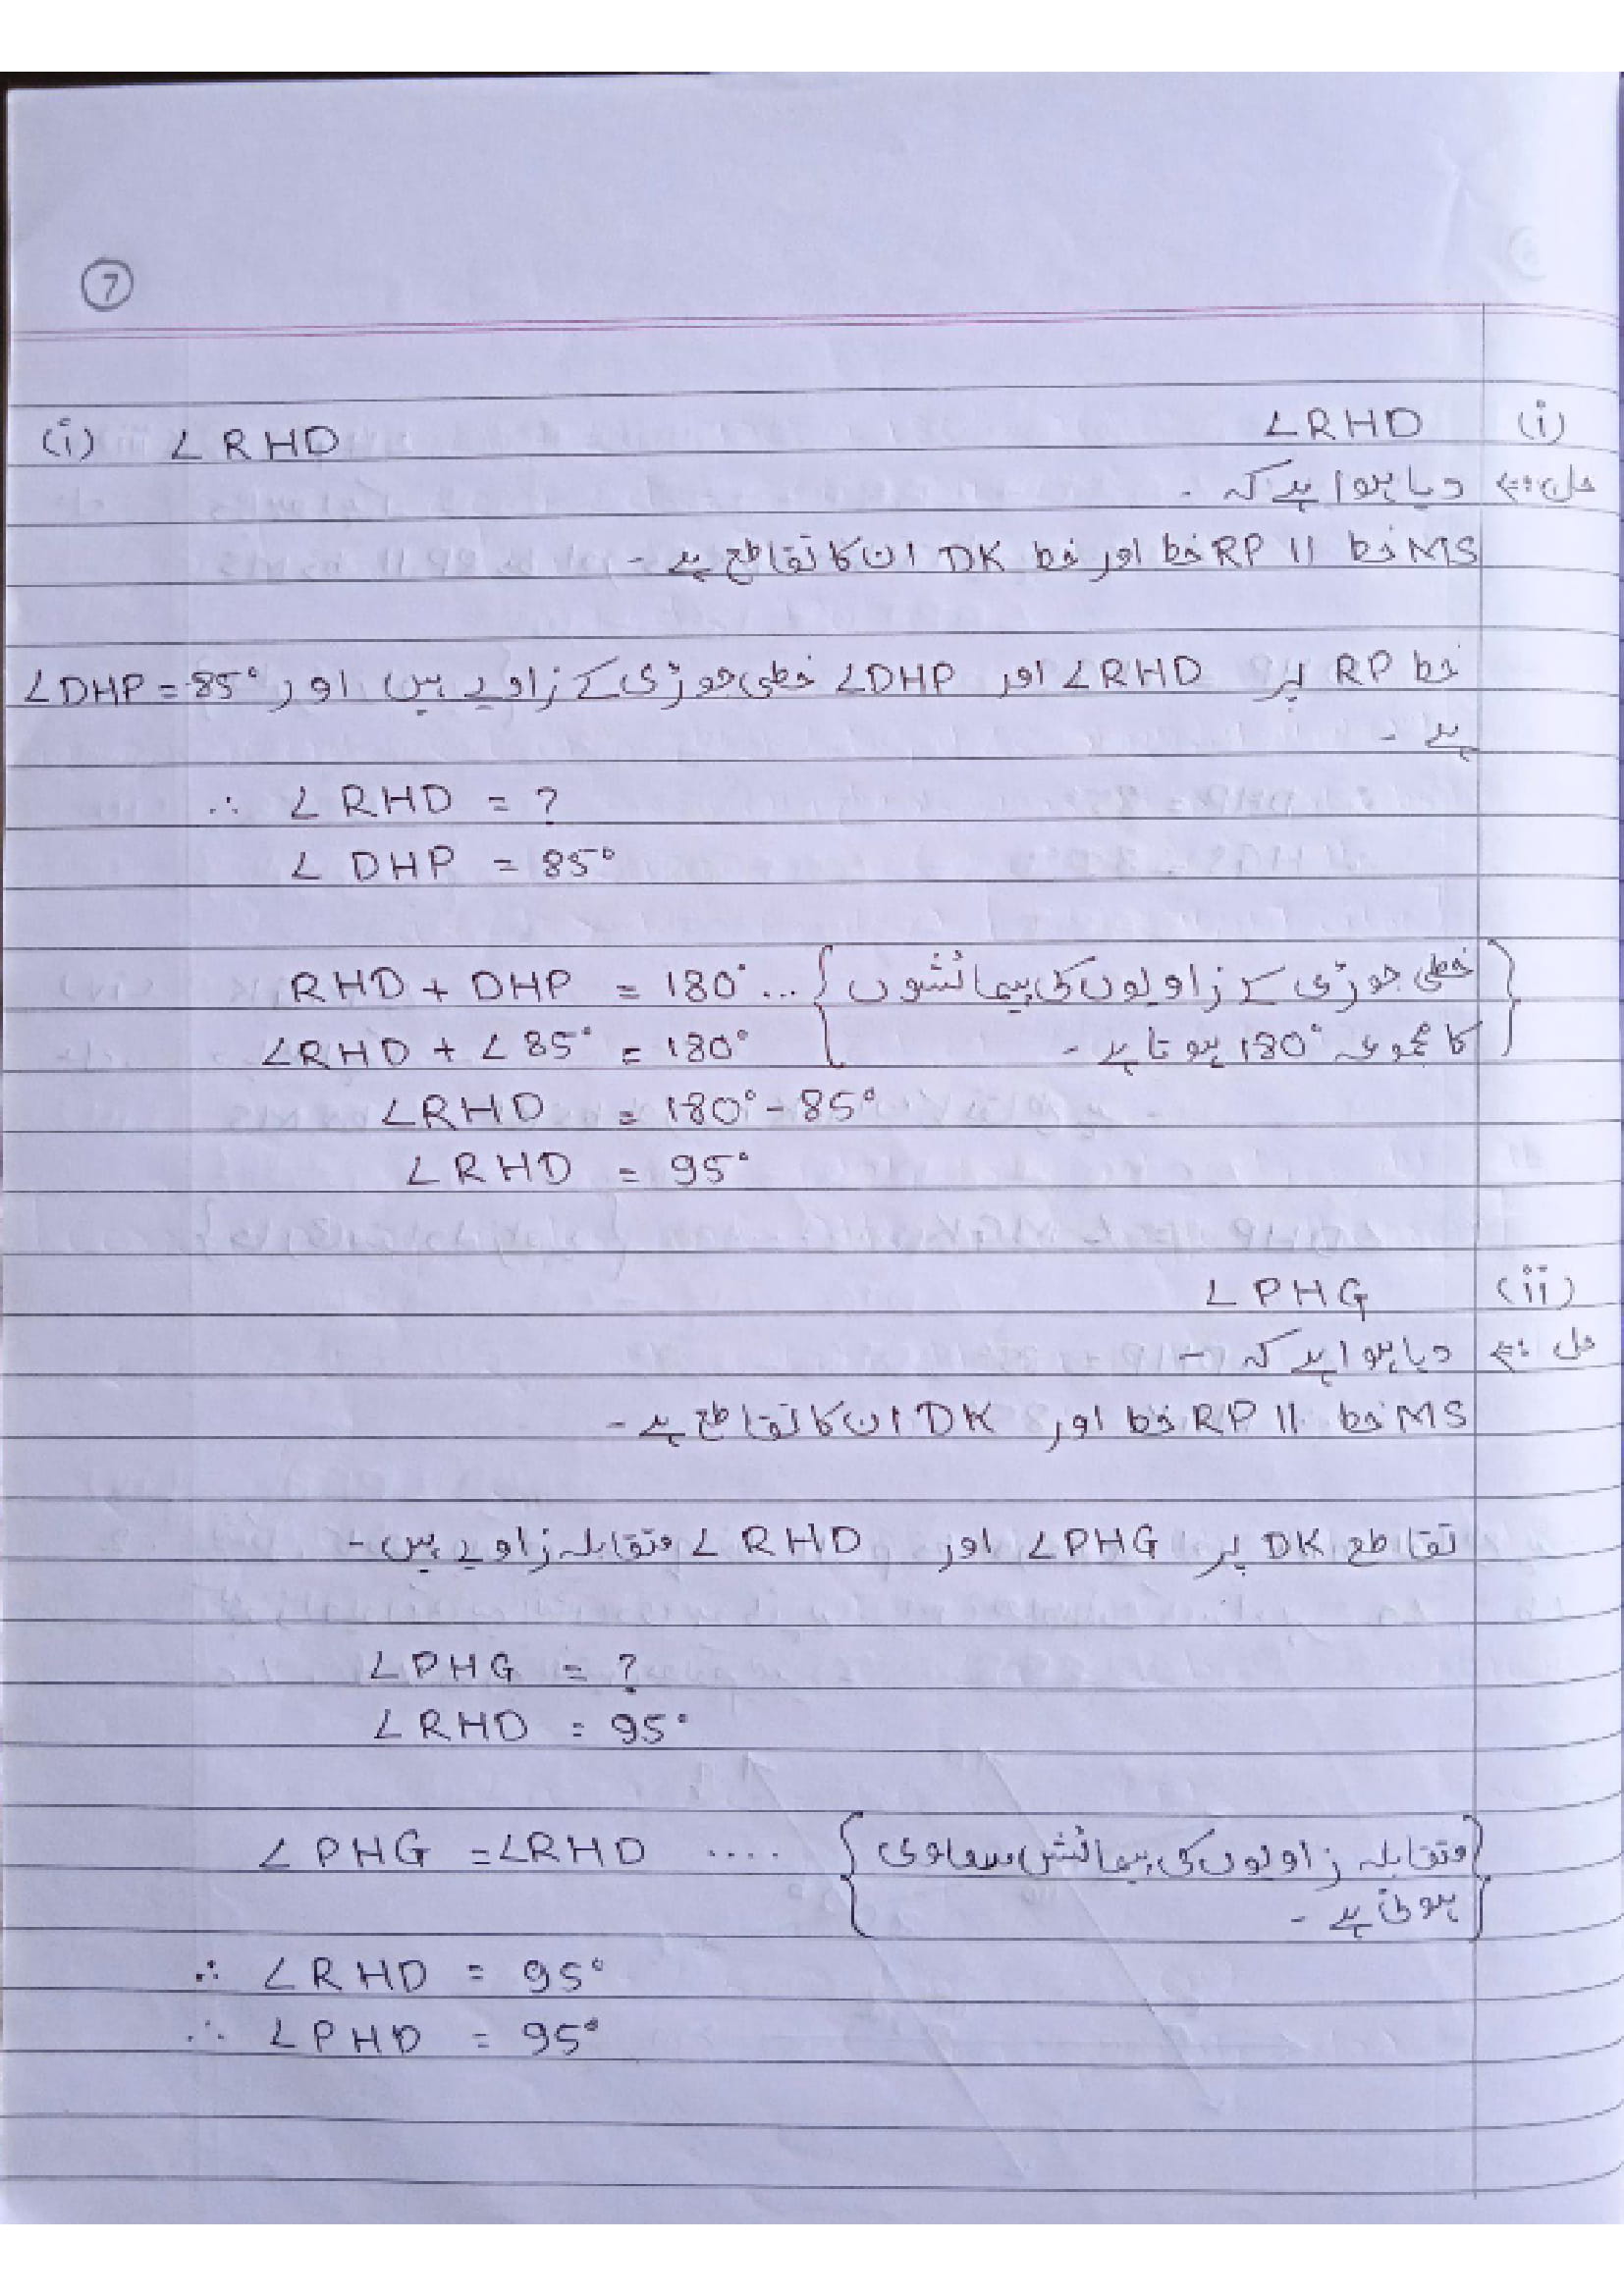 7
(i) ∠RHD
(i) ∠RHD
حل :⇐ دیا ہوا ہے کہ -
MS خط || RP خط اور خط DK ان کا تقاطع ہے -
خط RP پر ∠RHD اور ∠DHP خطی جوڑی کے زاویے ہیں اور ∠DHP = 85°
ہے -
∴ ∠RHD = ?
∠DHP = 85°
RHD + DHP = 180° ... { خطی جوڑی کے زاویوں کی پیمائشوں
∠RHD + ∠85° = 180° کا مجموعہ 180° ہوتا ہے - }
∠RHD = 180° - 85°
∠RHD = 95°
(ii) ∠PHG
حل :⇐ دیا ہوا ہے کہ -
MS خط || RP خط اور DK ان کا تقاطع ہے -
تقاطع DK پر ∠PHG اور ∠RHD متقابلہ زاویے ہیں -
∠PHG = ?
∠RHD = 95°
∠PHG = ∠RHD .... { متقابلہ زاویوں کی پیمائش مساوی
ہوتی ہے - }
∴ ∠RHD = 95°
∴ ∠PHD = 95°